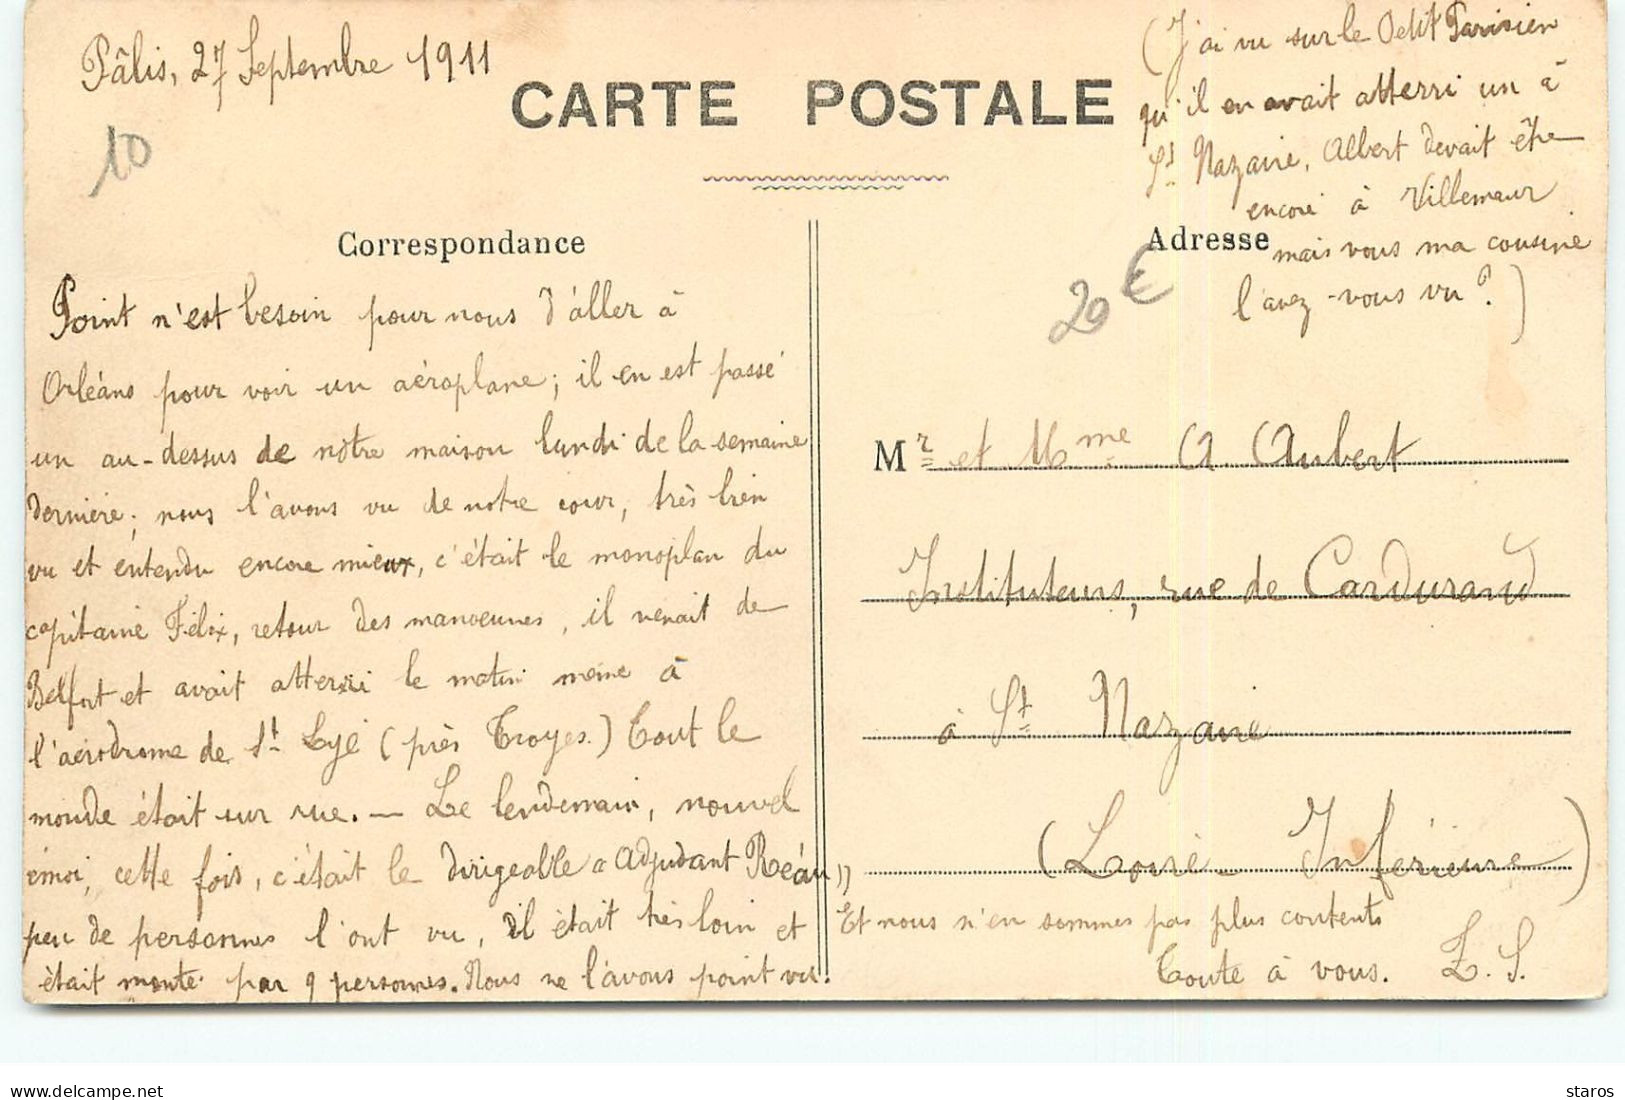 Pâlis, 27 Septembre 1911
10
CARTE POSTALE
(J'ai vu sur le Petit Parisien
qu'il en avait atterri un à
St Nazaire, Albert devait être
encore à Villemaur
mais vous ma cousine
l'avez-vous vu ?)
Correspondance
Point n'est besoin pour nous d'aller à
Orléans pour voir un aéroplane ; il en est passé
un au-dessus de nôtre maison lundi de la semaine
dernière ; nous l'avons vu de notre cour, très bien
vu et entendu encore mieux, c'était le monoplan du
capitaine Félix, retour des manoeuvres, il venait de
Belfort et avait atterri le matin même à
l'aérodrome de St Lyé (près Troyes.) Tout le
monde était sur rue. — Le lendemain, nouvel
émoi, cette fois, c'était le dirigeable « Adjudant Réau »
peu de personnes l'ont vu, il était très loin et
était monté par 9 personnes. Nous ne l'avons point vu.
Adresse
20 €
Mr et Mme A Aubert
Instituteurs, rue de Cardurand
à St Nazaire
(Loire-Inférieure)
Et nous n'en sommes pas plus contents
Toute à vous. Z. S.
www.delcampe.net
staros